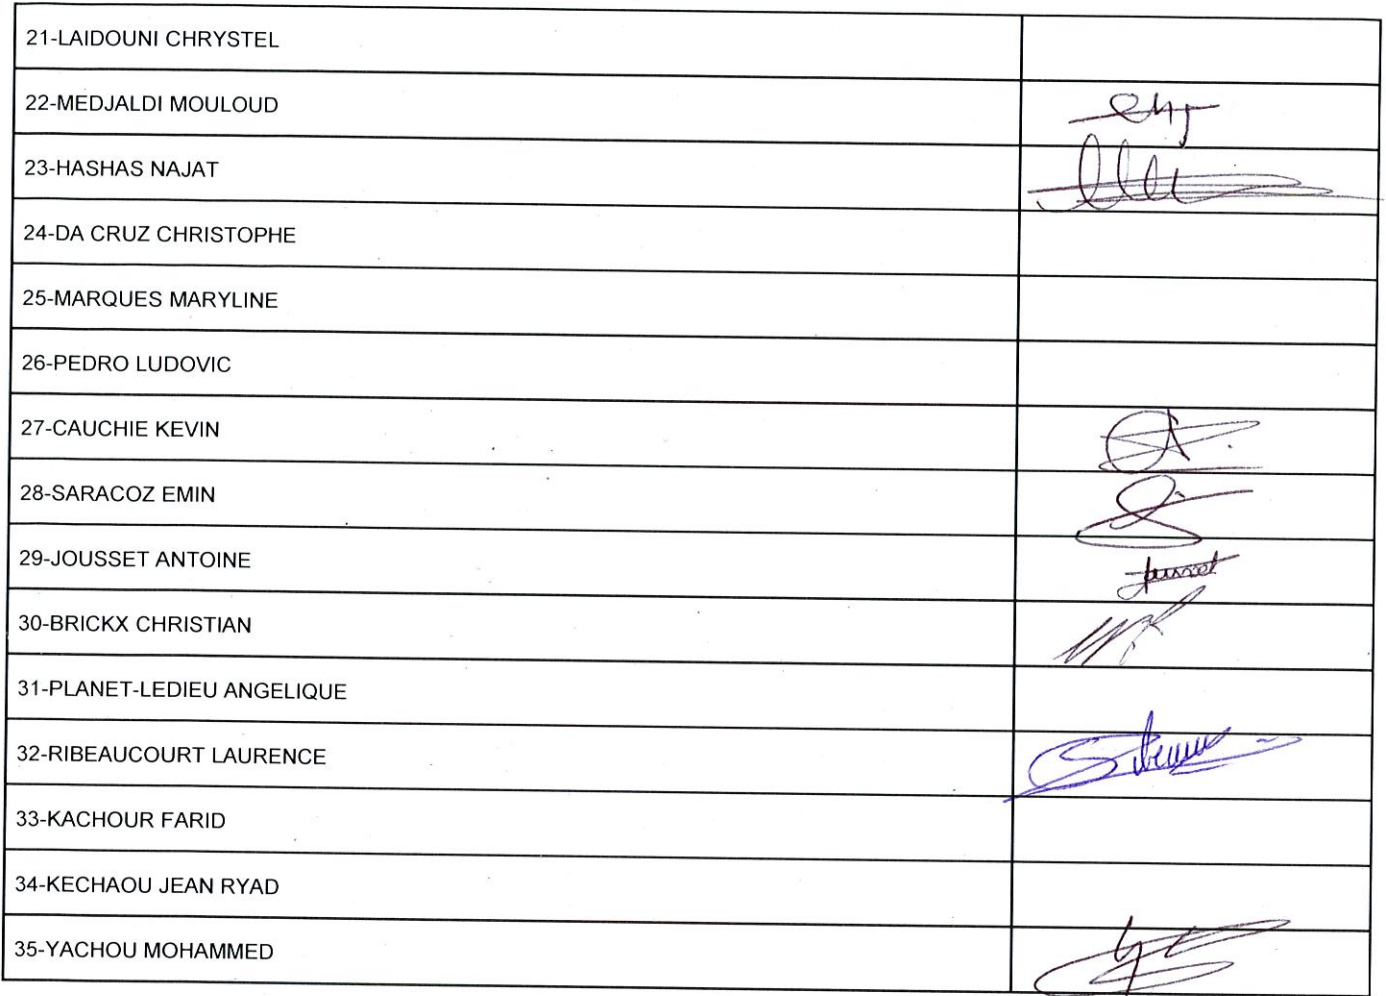 21-LAIDOUNI CHRYSTEL
22-MEDJALDI MOULOUD
23-HASHAS NAJAT
24-DA CRUZ CHRISTOPHE
25-MARQUES MARYLINE
26-PEDRO LUDOVIC
27-CAUCHIE KEVIN
28-SARACOZ EMIN
29-JOUSSET ANTOINE
30-BRICKX CHRISTIAN
31-PLANET-LEDIEU ANGELIQUE
32-RIBEAUCOURT LAURENCE
33-KACHOUR FARID
34-KECHAOU JEAN RYAD
35-YACHOU MOHAMMED